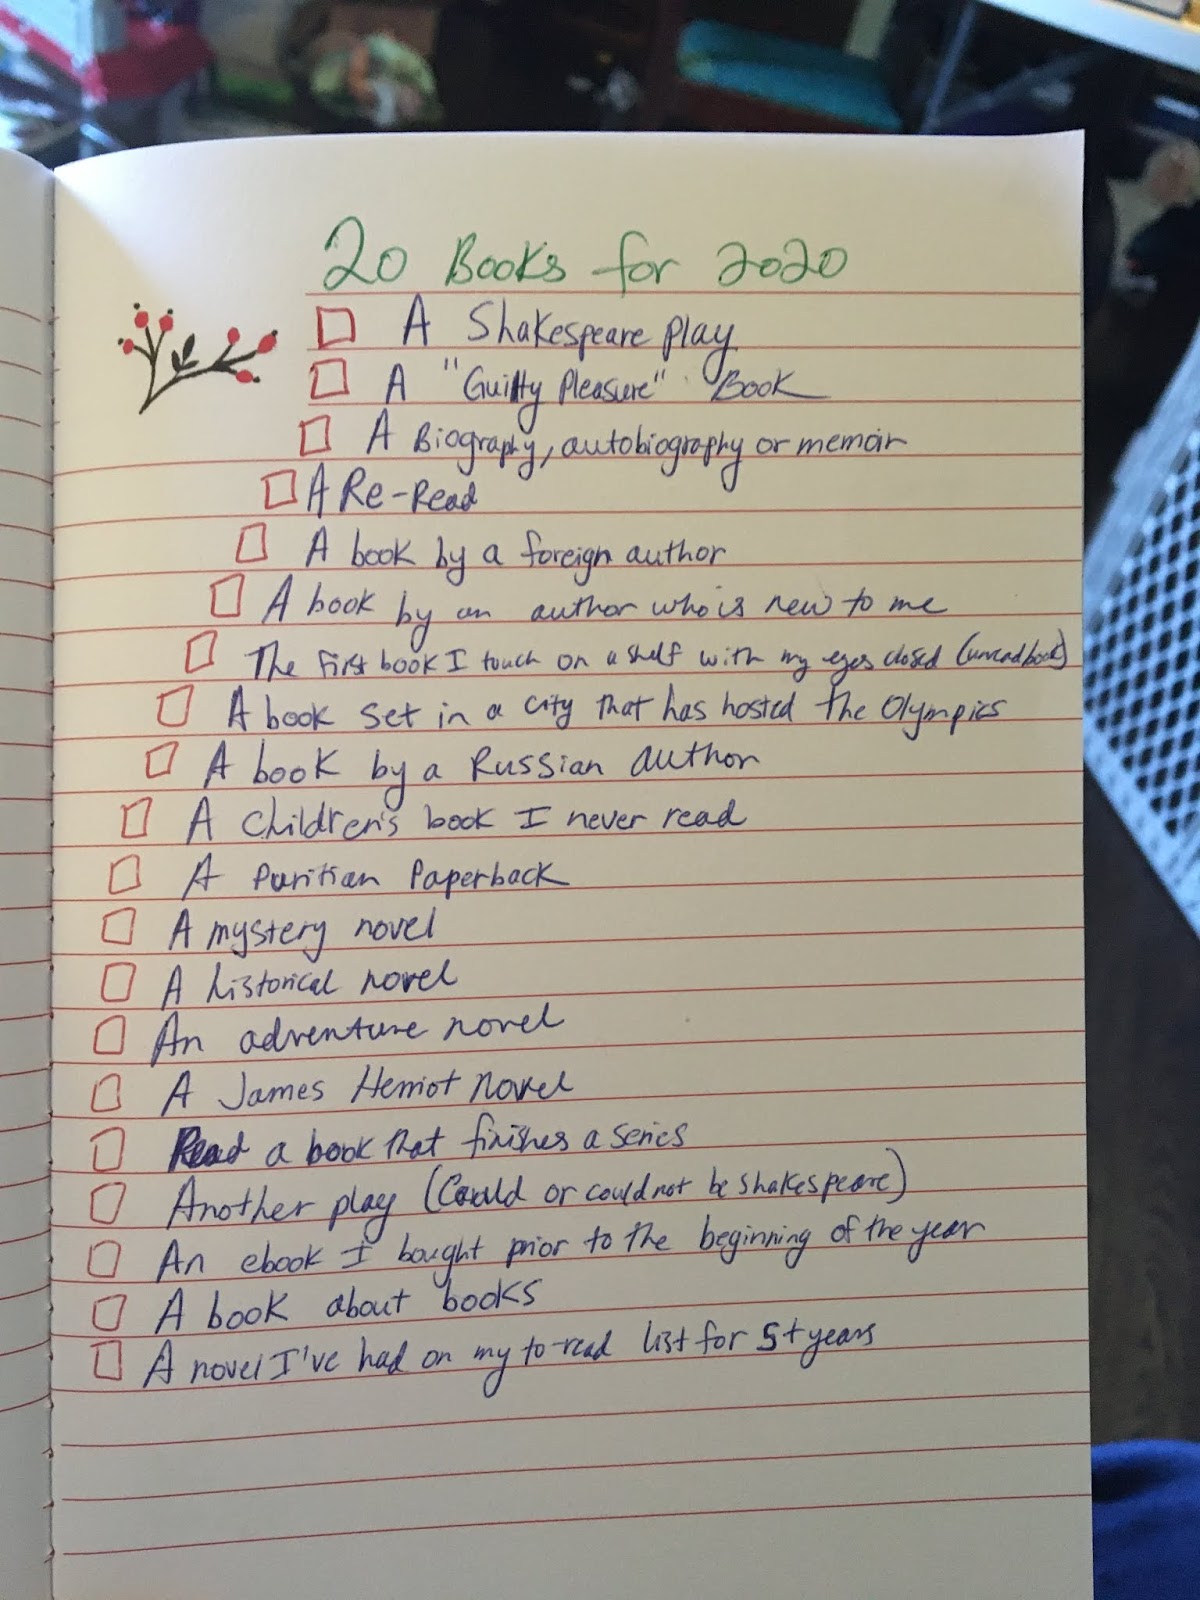 20 Books for 2020
A Shakespeare play
A "Guilty Pleasure" Book
A Biography, autobiography or memoir
A Re-Read
A book by a foreign author
A book by an author who is new to me
The first book I touch on a shelf with my eyes closed (unread book)
A book set in a city that has hosted the Olympics
A book by a Russian author
A Children's book I never read
A Puritian Paperback
A mystery novel
A historical novel
An adventure novel
A James Herriot novel
Read a book that finishes a series
Another play (Could or could not be Shakespeare)
An ebook I bought prior to the beginning of the year
A book about books
A novel I've had on my to-read list for 5+ years